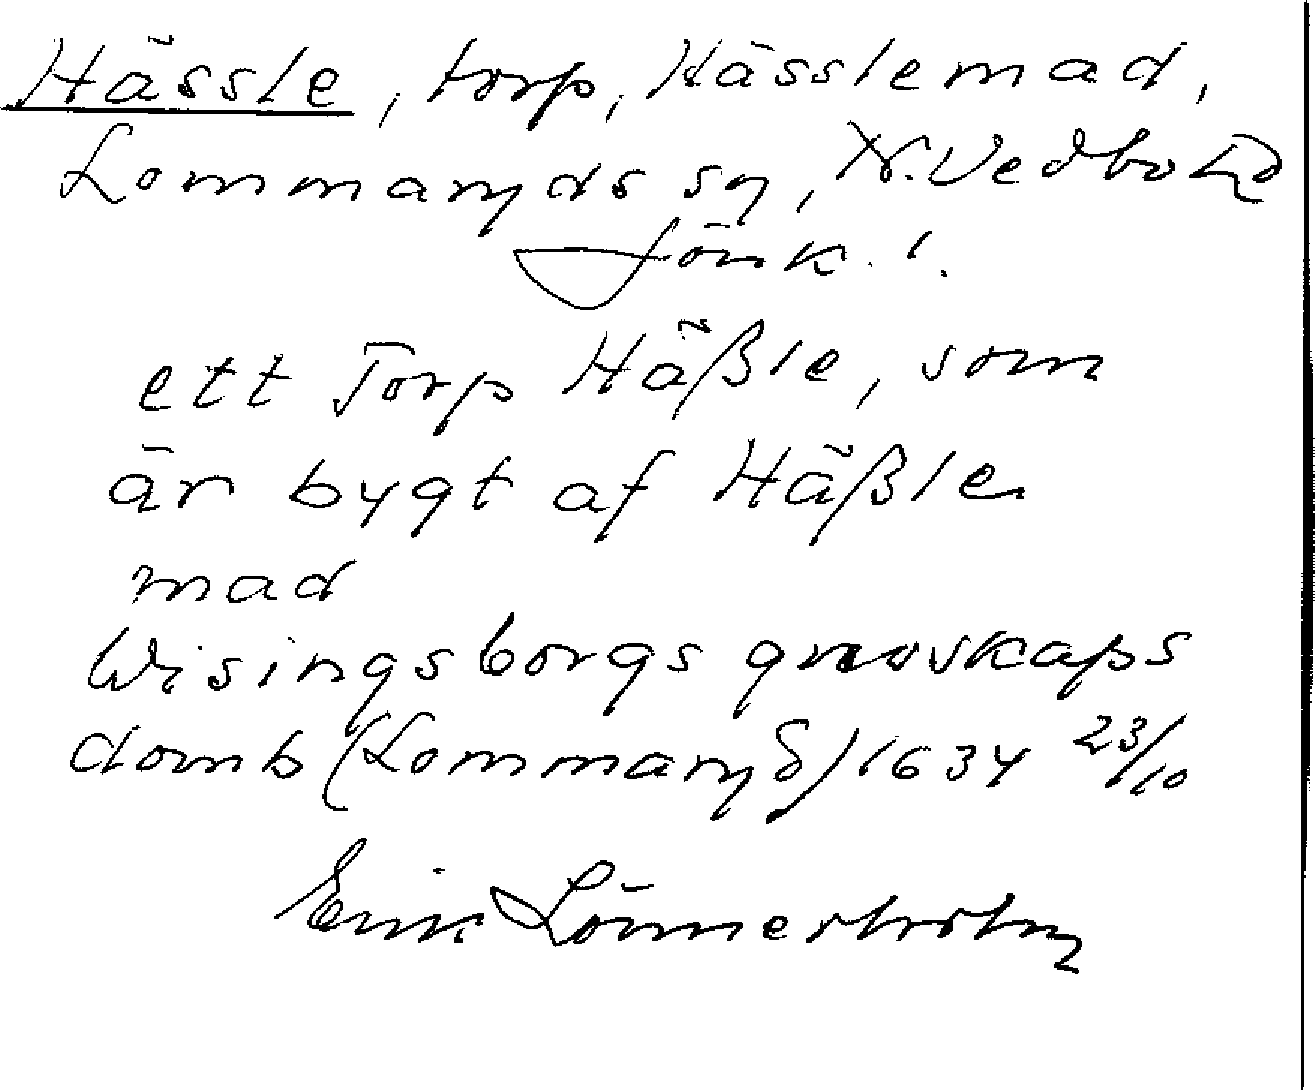 Hässle, torp, Hässlemad,
Lommaryds sn, N. Vedbo hd
Jönk. l.
ett Torp Häßle, som
är bygt af Häßle
mad
Wisingsborgs grevskaps
domb (Lommaryd) 1634 23/10
Erik Lönnerholm